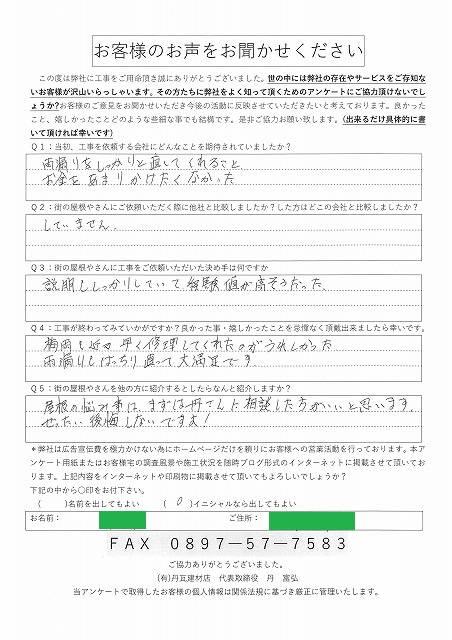 お客様のお声をお聞かせください
この度は弊社に工事をご用命頂き誠にありがとうございました。世の中には弊社の存在やサービスをご存知な
いお客様が沢山いらっしゃいます。その方たちに弊社をよく知って頂くためのアンケートにご協力頂けないでし
ょうか?お客様のご意見をお聞かせいただき今後の活動に反映させていただきたいと考えております。良かった
こと、嬉しかったことどのような些細な事でも結構です。是非ご協力お願い致します。(出来るだけ具体的に書
いて頂ければ幸いです)
Q1:当初、工事を依頼する会社にどんなことを期待されていましたか?
雨漏りをしっかりと直してくれること
お金をあまりかけたくなかった
Q2:街の屋根やさんにご依頼いただく際に他社と比較しましたか?した方はどこの会社と比較しましたか?
していません。
Q3:街の屋根やさんに工事をご依頼いただいた決め手は何ですか
説明もしっかりしていて経験値が高そうだった。
Q4:工事が終わってみていかがですか?良かった事・嬉しかったことを忌憚なく頂戴出来ましたら幸いです。
梅雨も近め早く修理してくれたのがうれしかった
雨漏りもばっちり直って大満足です。
Q5:街の屋根やさんを他の方に紹介するとしたらなんと紹介しますか?
屋根の悩み事は、まずは丹さんに相談した方がいいと思います。
ぜったい後悔しないですよ!
*弊社は広告宣伝費を極力かけない為にホームページだけを頼りにお客様への営業活動を行っております。本ア
ンケート用紙またはお客様宅の調査風景や施工状況を随時ブログ形式のインターネットに掲載させて頂いてお
ります。上記内容をインターネットや印刷物に掲載させて頂いてもよろしいでしょうか?
下記の中から〇印をお付下さい。
( )名前を出してもよい ( O )イニシャルなら出してもよい
お名前: ご住所:
FAX 0897-57-7583
ご協力ありがとうございました。
(有)丹瓦建材店 代表取締役 丹 富弘
当アンケートで取得したお客様の個人情報は関係法規に基づき厳正に管理いたします。